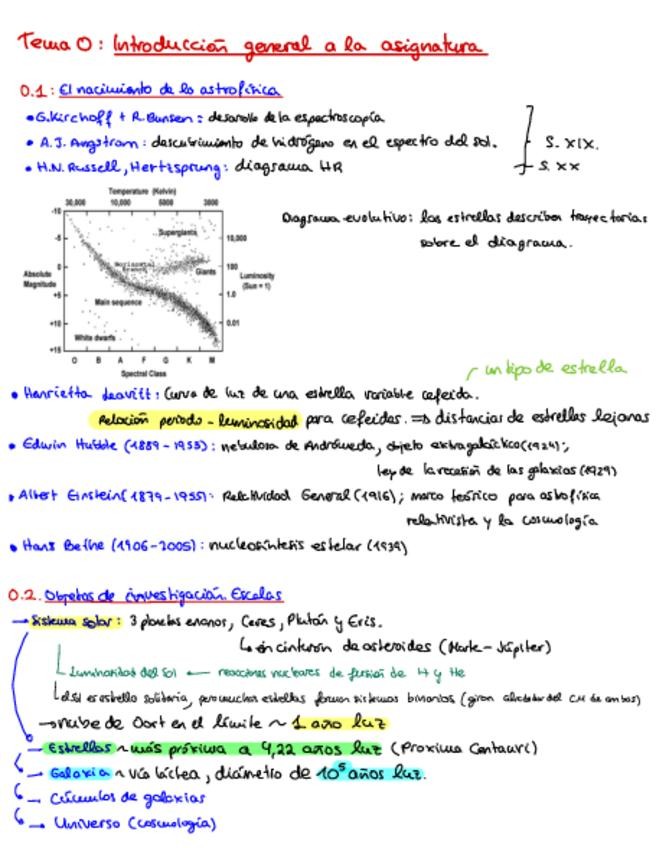 Tema 0: Introducción general a la asignatura
0.1: El nacimiento de la astrofísica
• G.Kirchoff + R.Bunsen: desarrollo de la espectroscopía
• A.J. Angstram: descubrimiento de hidrógeno en el espectro del sol.
S. XIX.
• H.N. Russell, Hertzsprung: diagrama HR
S. XX
Temperature (Kelvin)
30,000 10,000 5000 3000
-10
-5
0
+5
+10
+15
Absolute Magnitude
Supergiants
Horizontal Branch
Giants
Main sequence
White dwarfs
10,000
100
1.0
0.01
Luminosity (Sun = 1)
O B A F G K M
Spectral Class
Diagrama evolutivo: las estrellas describen trayectorias
sobre el diagrama.
un tipo de estrella
• Henrietta Leavitt: Curva de luz de una estrella variable cefeida.
Relación periodo-luminosidad para cefeidas. => distancias de estrellas lejanas
• Edwin Hubble (1889-1953): nebulosa de Andrómeda, objeto extragaláctico (1924);
ley de la recesión de las galaxias (1929)
• Albert Einstein (1879-1955): Relatividad General (1916); marco teórico para astrofísica
relativista y la cosmología
• Hans Bethe (1906-2005): nucleosíntesis estelar (1939)
0.2. Objetos de investigación. Escalas
→ Sistema solar: 3 planetas enanos, Ceres, Plutón y Eris.
↳ en cinturón de asteroides (Marte-Júpiter)
Luminosidad del Sol ← reacciones nucleares de fusión de H y He
el sol es estrella solitaria, pero muchas estrellas forman sistemas binarios (giran alrededor del CM de ambas)
→ nube de Oort en el límite ~ 1 año luz
→ Estrellas ~ más próxima a 4,22 años luz (Proxima Centauri)
→ Galaxia ~ vía láctea, diámetro de 10⁵ años luz.
→ Cúmulos de galaxias
→ Universo (cosmología)